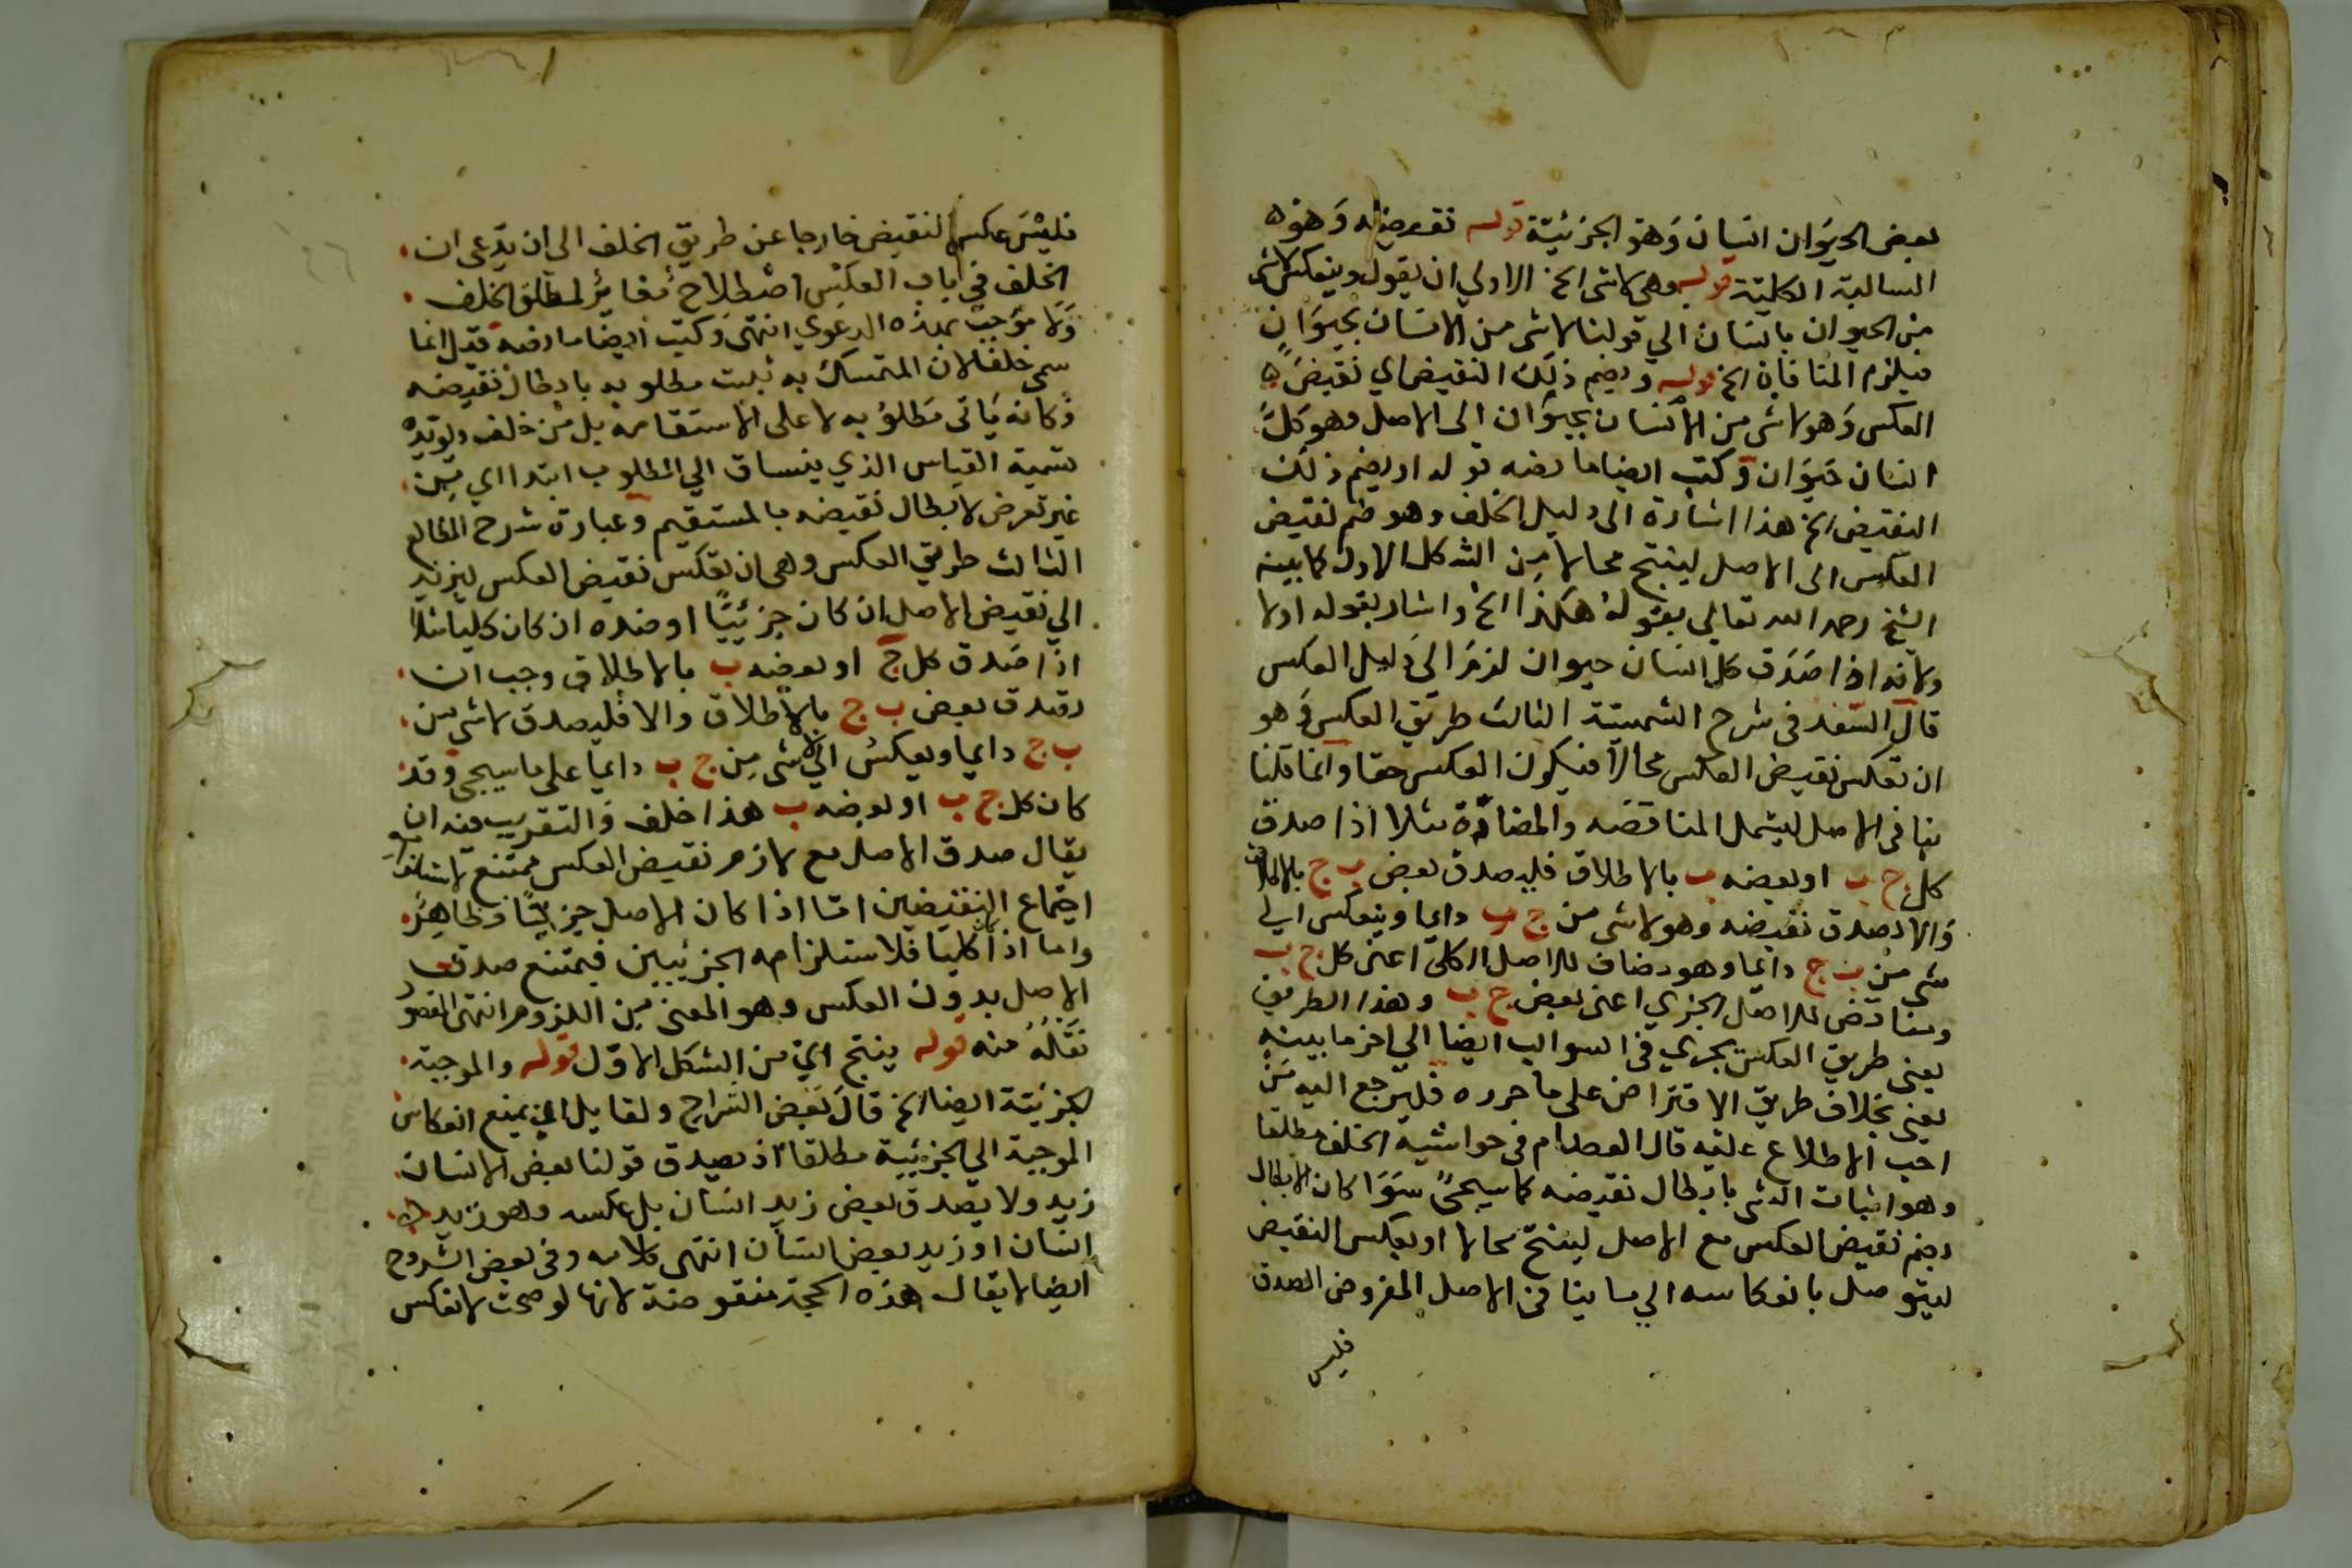 بعض الحيوان انسان وهو الجزئية قوله نقيضه وهو
السالبة الكلية قوله وهي لا شي الخ الاولي ان يقول وينعكس لا شي
من الحيوان بانسان الي قولنا لا شي من الانسان بحيوان
فيلزم المنافاة الخ قوله ويضم ذلك النقيض اي نقيض
العكس وهو لا شي من الانسان بحيوان الى الاصل وهو كل
انسان حيوان وكتب ايضا ما نصه قوله او يضم ذلك
النقيض الخ هذا اشارة الى دليل الخلف وهو ضم نقيض
العكس الى الاصل لينتج محالا من الشكل الاول كما بينه
الشيخ رحمه الله تعالي بقوله هكذا الخ واشار بقوله اولا
ولانه اذا صدق كل انسان حيوان لزم الى دليل العكس
قال السعد في شرح الشمسية الثالث طريق العكس وهو
ان تعكس نقيض العكس محالا فيكون العكس حقا وانما قلنا
ينافى الاصل ليشمل المناقضه والمضادة مثلا اذا صدق
كل ج ب او بعضه ب بالاطلاق فليصدق بعض ب ج بالاطلاق
والا لصدق نقيضه وهو لا شي من ج ب دايما وينعكس الي
شي من ب ج دايما وهو مضاف للاصل الكلي اعنى كل ج ب
ومناقض للاصل الجزي اعنى بعض ج ب وهذا الطريق
يعنى طريق العكس يجري في السوالب ايضا الي اخر ما بينه
يعنى بخلاف طريق الافتراض على ما حرره فليرجع اليه من
احب الاطلاع عليه قال العصام في حواشيه الخلف مطلقا
وهو اثبات الشي بابطال نقيضه كما سيجئ سوا كان الابطال
بضم نقيض العكس مع الاصل لينتج محالا او بعكس النقيض
ليتوصل بانعكاسه الي ما ينافى الاصل المفروض الصدق
فليس
فليس عكس النقيض خارجا عن طريق الخلف الى ان يدعى ان
الخلف في باب العكس اصطلاح مغاير لمطلق الخلف
ولا موجب لهذه الدعوي انتهى وكتب ايضا ما نصه قيل انما
سمى خلفا لان المتمسك به يثبت مطلوبه بابطال نقيضه
وكانه ياتى مطلوبه لا على الاستقامه بل من خلفه ويويده
تسمية القياس الذي ينساق الي المطلوب ابتدا اي من
غير تعرض لابطال نقيضه بالمستقيم وعبارة شرح المطالع
الثالث طريق العكس وهى ان تعكس نقيض العكس ليرتد
الي نقيض الاصل ان كان جزئيا او ضده ان كان كليا مثلا
اذا صدق كل ج او بعضه ب بالاطلاق وجب ان
يصدق بعض ب ج بالاطلاق والا فليصدق لا شي من
ب ج دايما وبعكس الي لا شي من ج ب دايما على ما سيجي وقد
كان كل ج ب او بعضه ب هذا خلف والتقريب فيه ان
يقال صدق الاصل مع لازم نقيض العكس ممتنع لاستلزامه
اجتماع النقيضين اما اذا كان الاصل جزئيا فظاهر
واما اذا كليا فلاستلزامه الجزئيين فيمتنع صدق
الاصل بدون العكس وهو المعنى من اللزوم انتهى المقصود
نقله منه قوله ينتج اي من الشكل الاول قوله والموجبة
الجزئية ايضا الخ قال بعض الشراح ولقايل ان يمنع انعكاس
الموجبة الي الجزئية مطلقا اذ يصدق قولنا بعض الانسان
زيد ولا يصدق بعض زيد انسان بل عكسه وهو زيد
انسان او زيد بعض انسان انتهى كلامه وفي بعض الشروح
ايضا لا يقال هذه الحجة منقوضة لانها لو صحت لانعكس